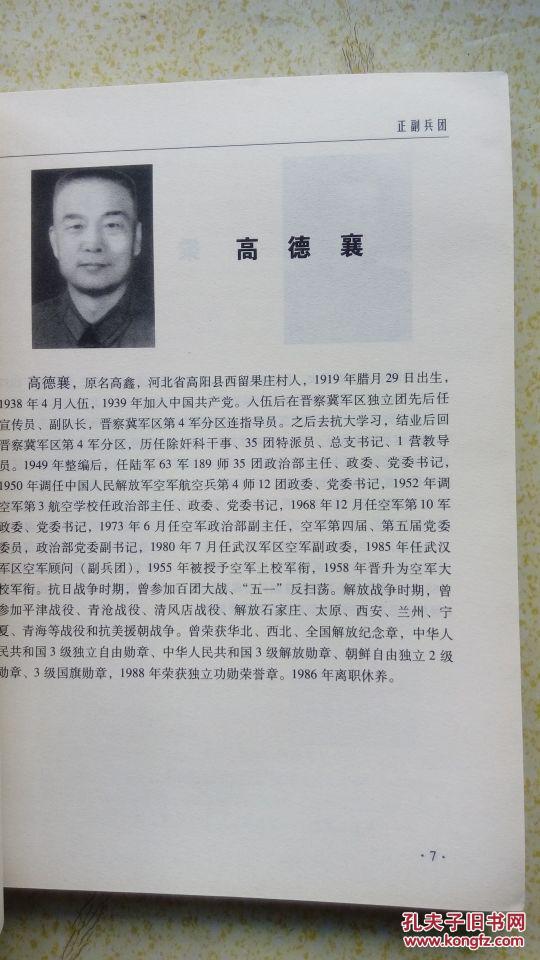 正副兵团
高德襄
高德襄，原名高鑫，河北省高阳县西留果庄村人，1919 年腊月 29 日出生，
1938 年 4 月入伍，1939 年加入中国共产党。入伍后在晋察冀军区独立团先后任
宣传员、副队长，晋察冀军区第 4 军分区连指导员。之后去抗大学习，结业后回
晋察冀军区第 4 军分区，历任除奸科干事、35 团特派员、总支书记、1 营教导
员。1949 年整编后，任陆军 63 军 189 师 35 团政治部主任、政委、党委书记，
1950 年调任中国人民解放军空军航空兵第 4 师 12 团政委、党委书记，1952 年调
空军第 3 航空学校任政治部主任、政委、党委书记，1968 年 12 月任空军第 10 军
政委、党委书记，1973 年 6 月任空军政治部副主任，空军第四届、第五届党委
委员，政治部党委副书记，1980 年 7 月任武汉军区空军副政委，1985 年任武汉
军区空军顾问（副兵团），1955 年被授予空军上校军衔，1958 年晋升为空军大
校军衔。抗日战争时期，曾参加百团大战、“五一”反扫荡。解放战争时期，曾
参加平津战役、青沧战役、清风店战役、解放石家庄、太原、西安、兰州、宁
夏、青海等战役和抗美援朝战争。曾荣获华北、西北、全国解放纪念章，中华人
民共和国 3 级独立自由勋章、中华人民共和国 3 级解放勋章、朝鲜自由独立 2 级
勋章、3 级国旗勋章，1988 年荣获独立功勋荣誉章。1986 年离职休养。
·7·
孔夫子旧书网
www.kongfz.com